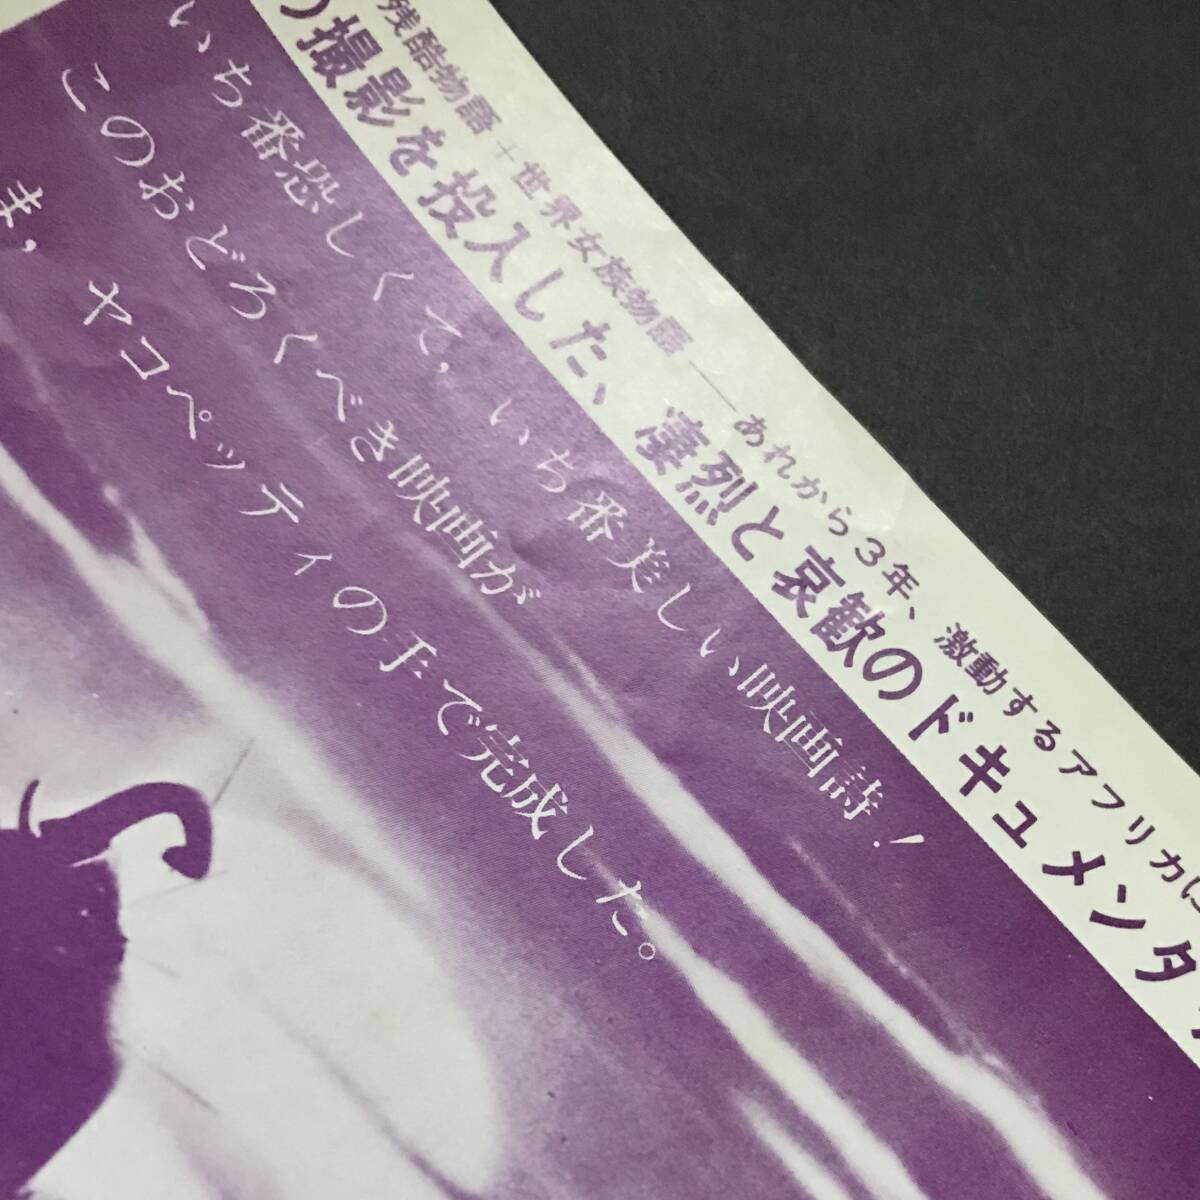 残酷物語＋世界女族物語――あれから3年、激動するアフリカに
撮影を投入した、凄烈と哀歓のドキュメンタ
いち番恐しくて，いち番美しい映画詩！
このおどろくべき映画が
ま，ヤコペッティの手で完成した。